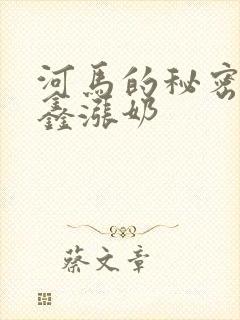 河马的秘密
鑫涨奶
蔡文章